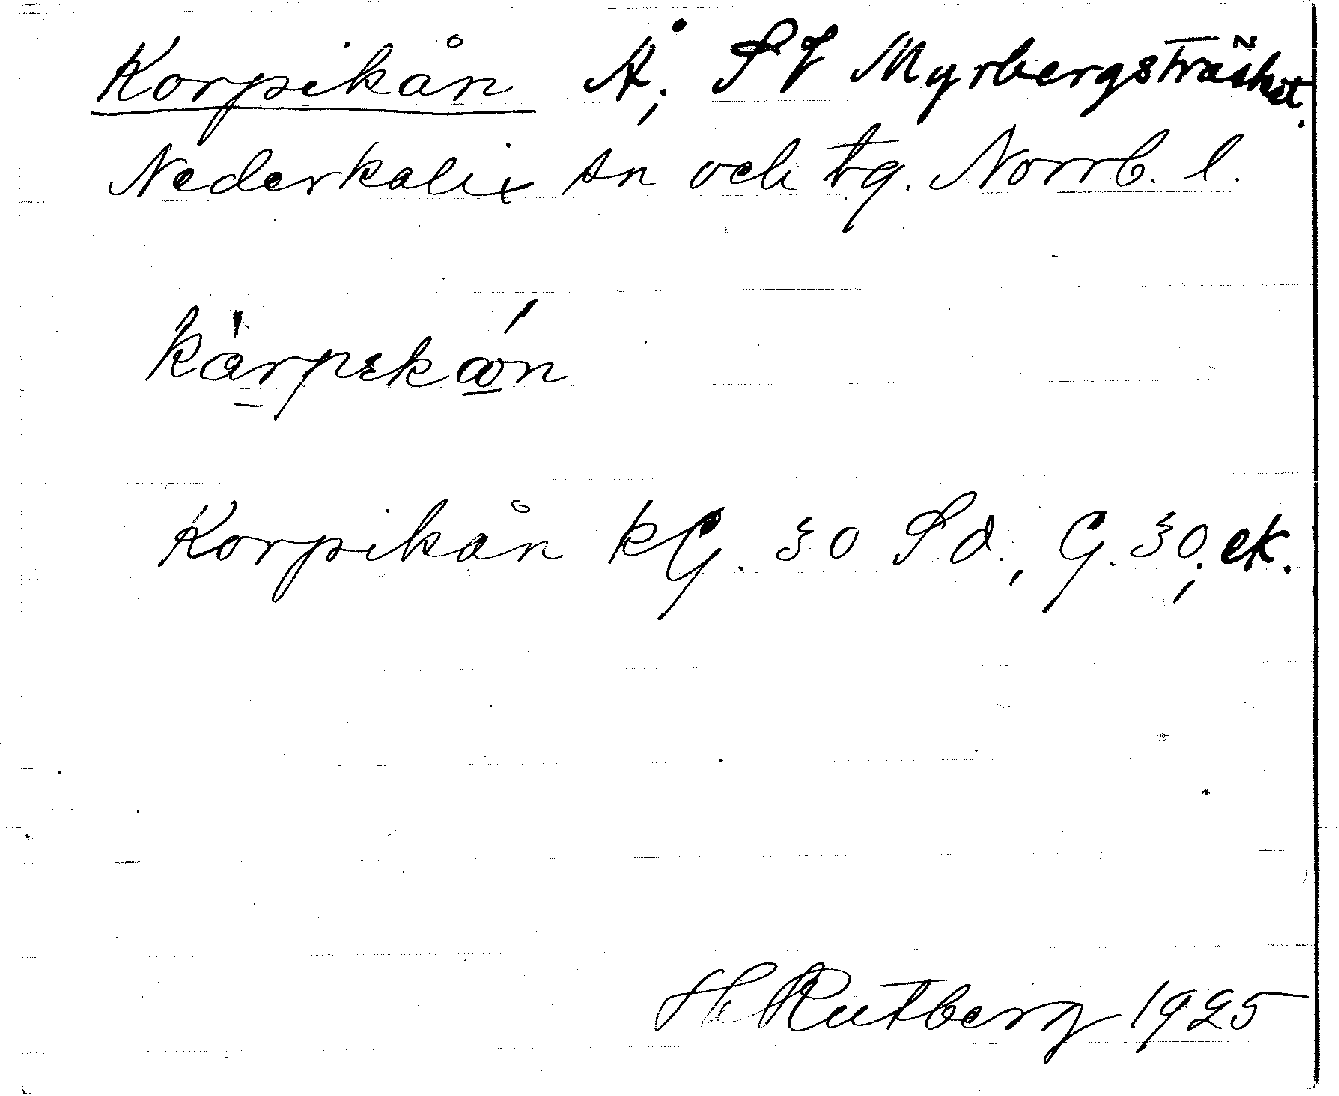 Korpikån Å; SV Myrbergsträsket.
Nederkalix sn och tg. Norrb. l.
kàrpɛkǿn
Korpikån kG. 30 Sd., G. 30; ek.
H Rutberg 1925